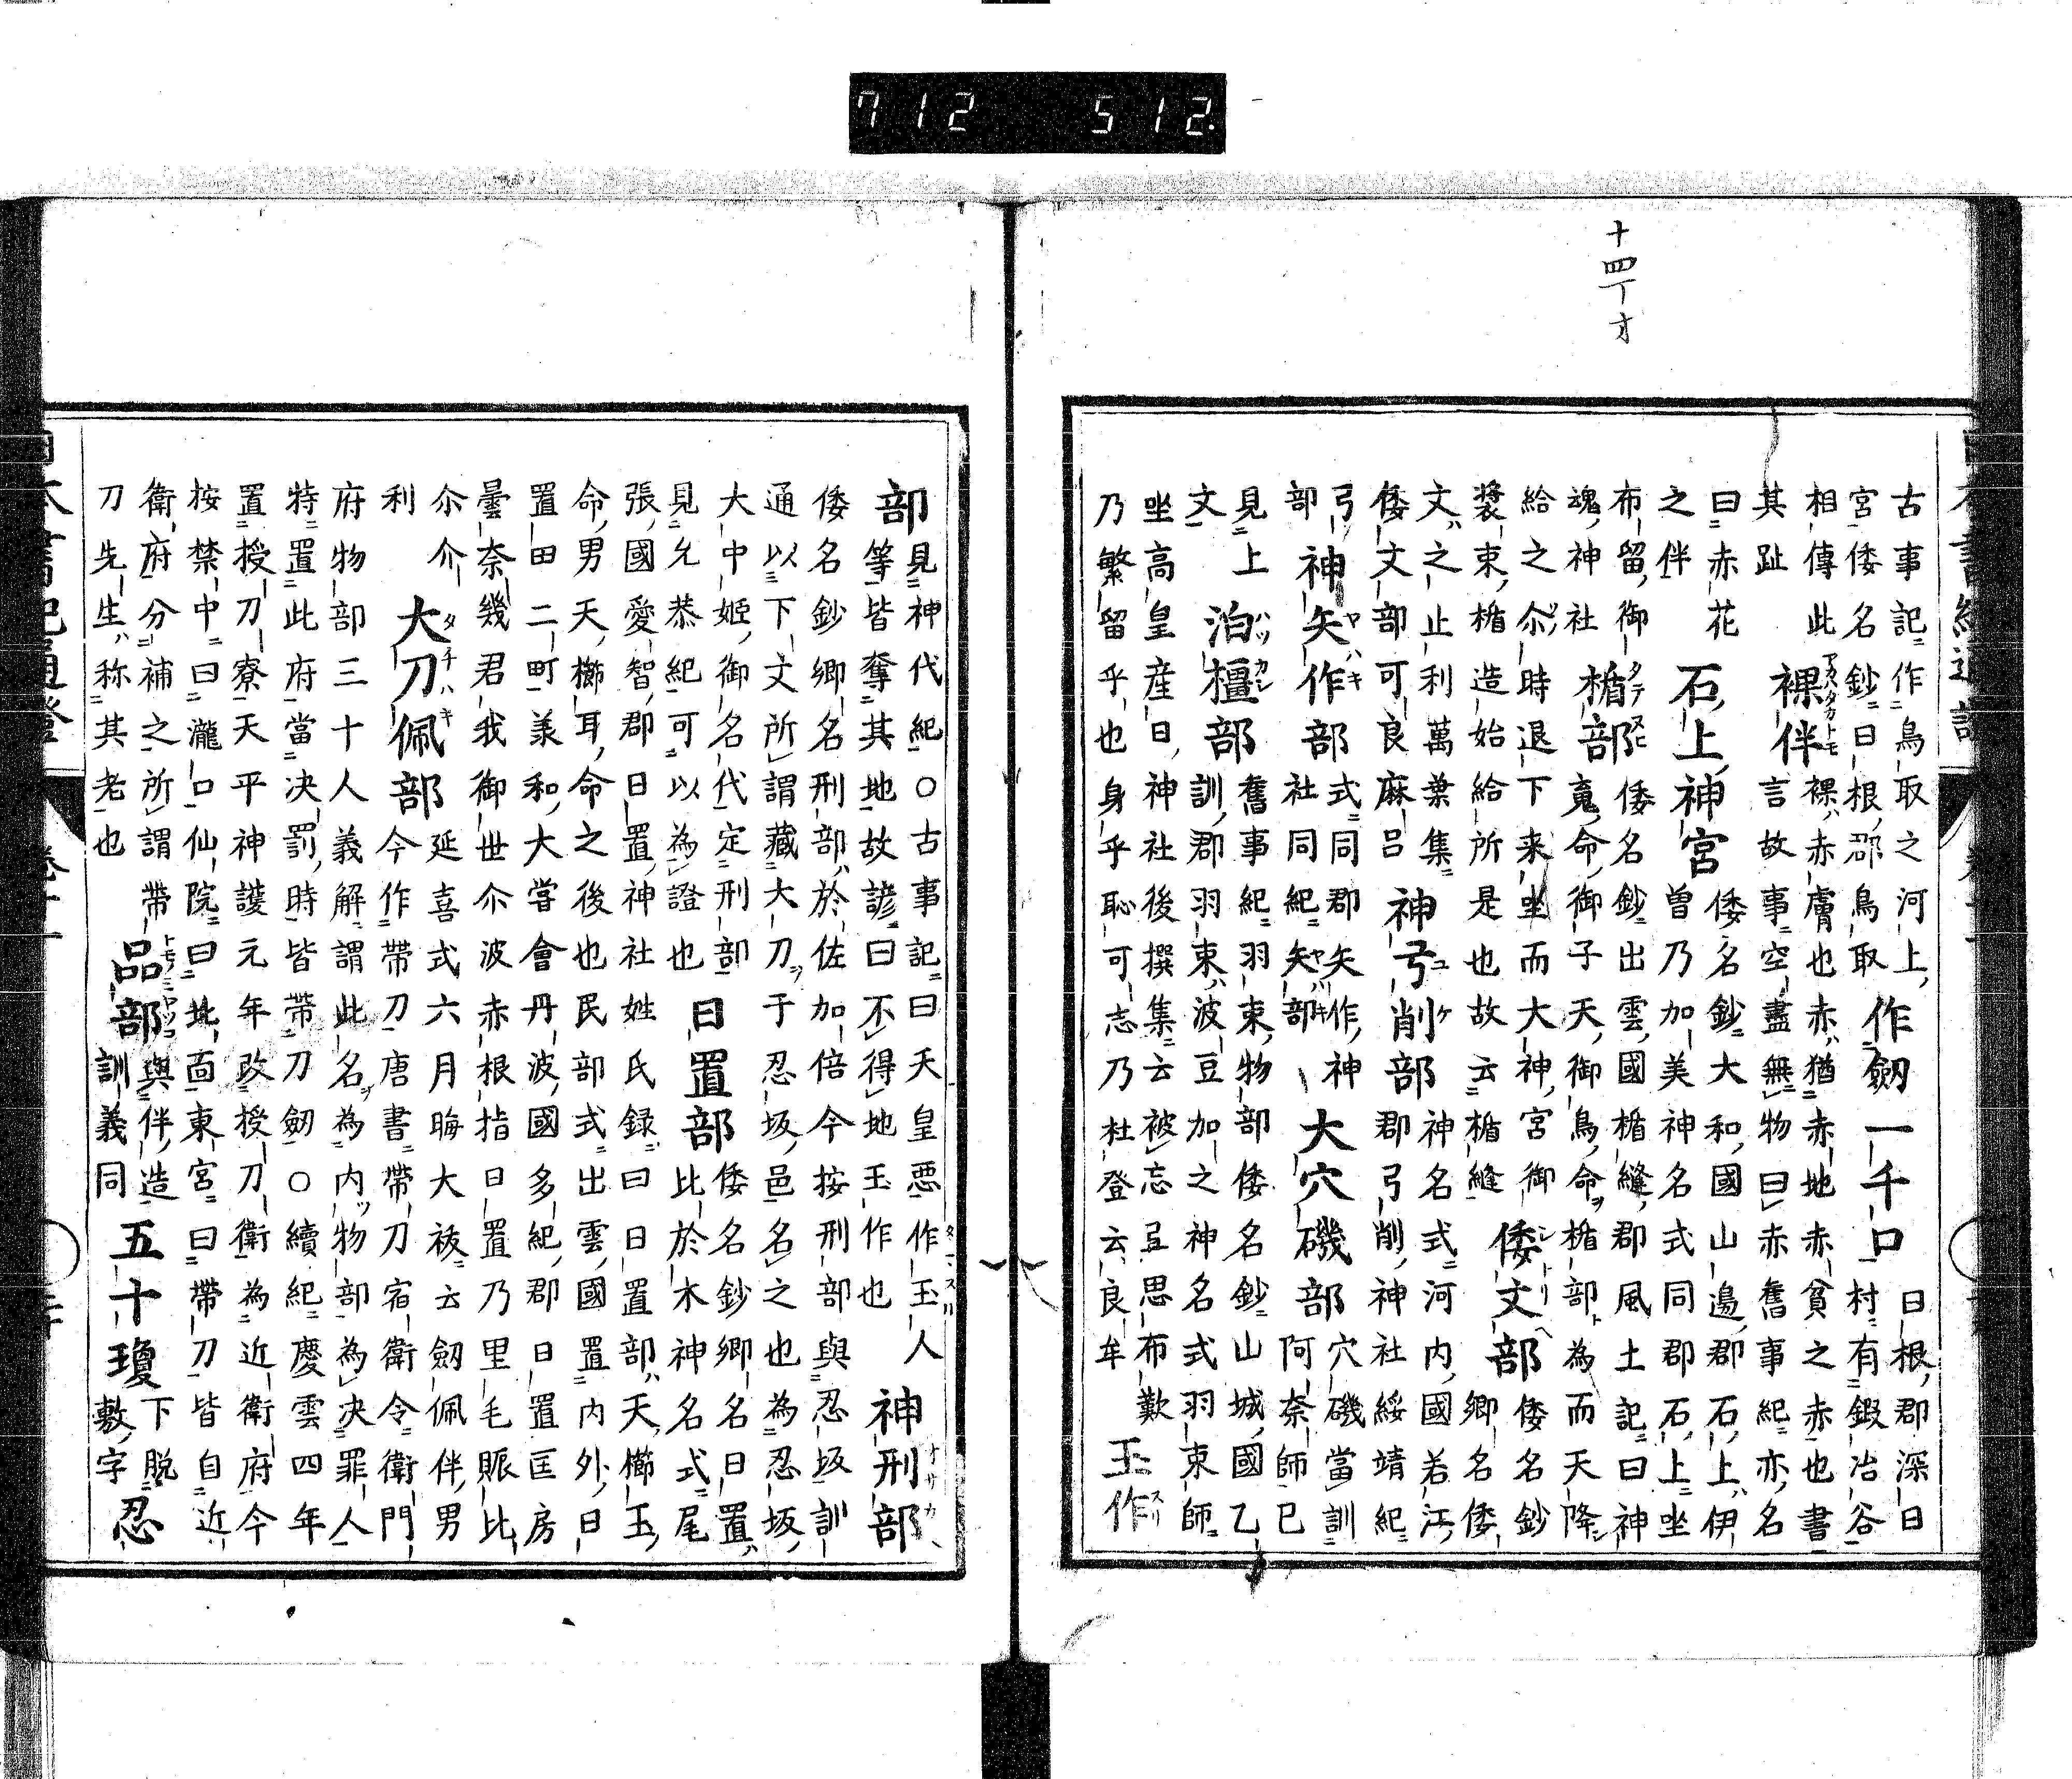 712 512.
十四丁オ
古事記作鳥取之河上作劔一千口日根郡深日
宮倭名鈔曰根郡鳥取村有鍛冶谷
相傳此裸伴裸赤膚也赤猶赤地赤貧之赤也書
其趾言故事空盡無物曰赤舊事紀亦名
曰赤花石上神宮倭名鈔大和國山邊郡石上伊
之伴曽乃加美神名式同郡石上坐
布留御楯部倭名鈔出雲國楯縫郡風土記曰神
魂神社寬命御子天御鳥命楯部為而天降
給之尒時退下来坐而大神宮御倭文部倭名鈔
裝束楯造始給所是也故云楯縫卿名倭
文之止利萬葉集神弓削部神名式河内國若江
倭文部可良麻呂郡弓削神社綏靖紀
弓神矢作部式同郡矢作神大穴磯部穴磯當訓
部社同紀矢部阿奈師已
見上泊橿部舊事紀羽束物部倭名鈔山城國乙
文訓郡羽束波豆加之神名式羽束師
坐高皇産日神社後撰集云被忘豆思布歎玉作
乃繁留乎也身乎恥可志乃杜登云良牟
部見神代紀○古事記曰天皇惡作玉人神刑部
等皆奪其地故諺曰不得地玉作也
倭名鈔卿名刑部於佐加倍今按刑部與忍坂訓
通以下文所謂藏大刀于忍坂邑名之也為忍坂
大中姬御名代定刑部日置部倭名鈔卿名日置
見允恭紀可以為證也比於木神名式尾
張國愛智郡日置神社姓氏録曰日置部天櫛玉
命男天櫛耳命之後也民部式出雲國置内外日
置田二町義和大嘗會丹波國多紀郡日置匡房
曇奈幾君我御世尒波赤根指日置乃里毛賑比
尒介大刀佩部延喜式六月晦大祓云劔佩伴男
利今作帶刀唐書帶刀宿衛令衛門
府物部三十人義解謂此名為内物部為决罪人
特置此府當决罰時皆帶刀劔○續紀慶雲四年
置授刀寮天平神護元年改授刀衛為近衛府今
按禁中曰瀧口仙院曰北面東宮曰帶刀皆自近
衛府分補之所謂帶品部與伴造五十瓊下脫忍
刀先生称其老也訓義同敷字